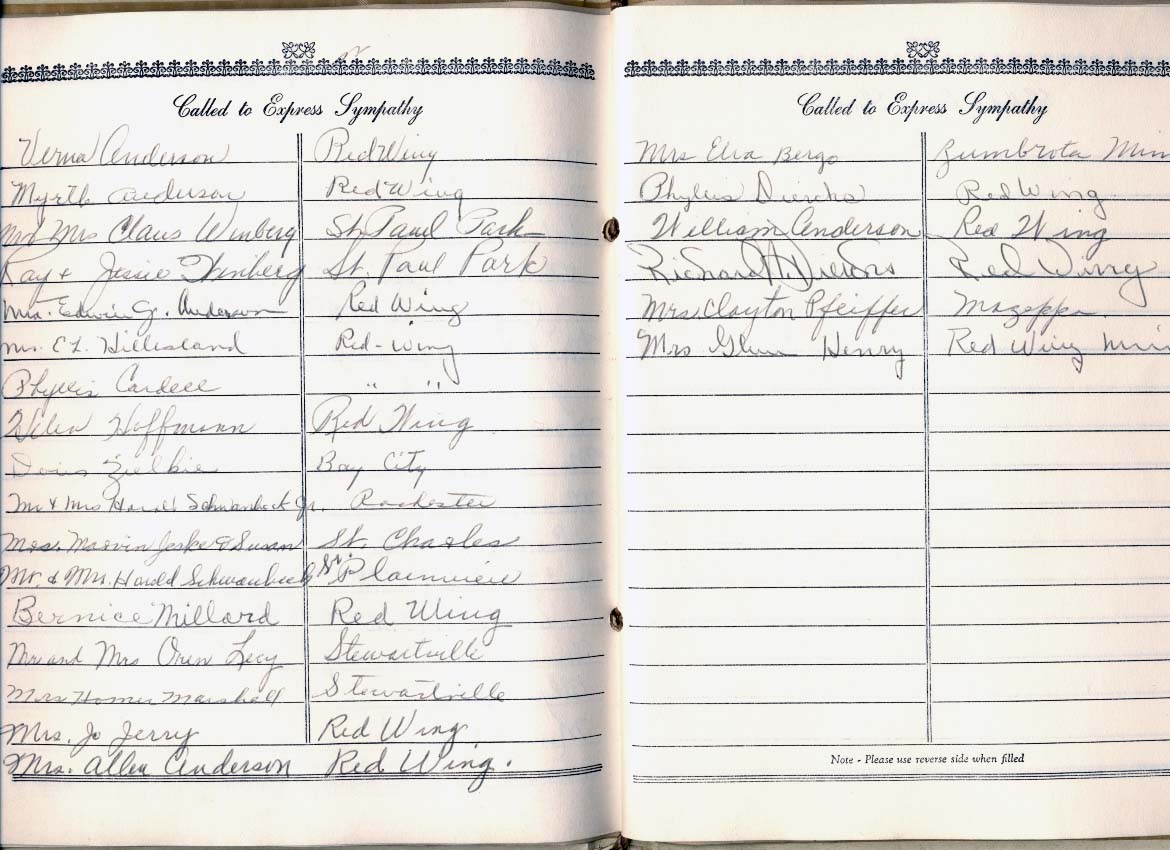 Called to Express Sympathy
Verna Anderson Red Wing
Myrtle Anderson Red Wing
Mr Mrs Claus Winberg St. Paul Park
Ray & Jessie Winberg St. Paul Park
Mrs. Edwin G. Anderson Red Wing
Mrs. C L. Hillesland Red-Wing
Phyllis Cardell " "
Helen Hoffmann Red Wing
Doris Zielkie Bay City
Mr & Mrs Harold Schwanbeck Jr. Rochester
Mrs. Marvin Jeske & Susan St. Charles
Mr. & Mrs. Harold Schwanbeck Sr. Plainview
Bernice Millard Red Wing
Mr and Mrs Oren Lecy Stewartville
Mrs Homer Marshall Stewartville
Mrs. Jo Jerry Red Wing
Mrs. Allen Anderson Red Wing.
Called to Express Sympathy
Mrs Elva Bergo Zumbrota Min
Phyllis Diercks Red Wing
William Anderson Red Wing
Richard H. Diercks Red Wing
Mrs Clayton Pfeiffer Mazeppa
Mrs Glenn Henry Red Wing Min
Note - Please use reverse side when filled